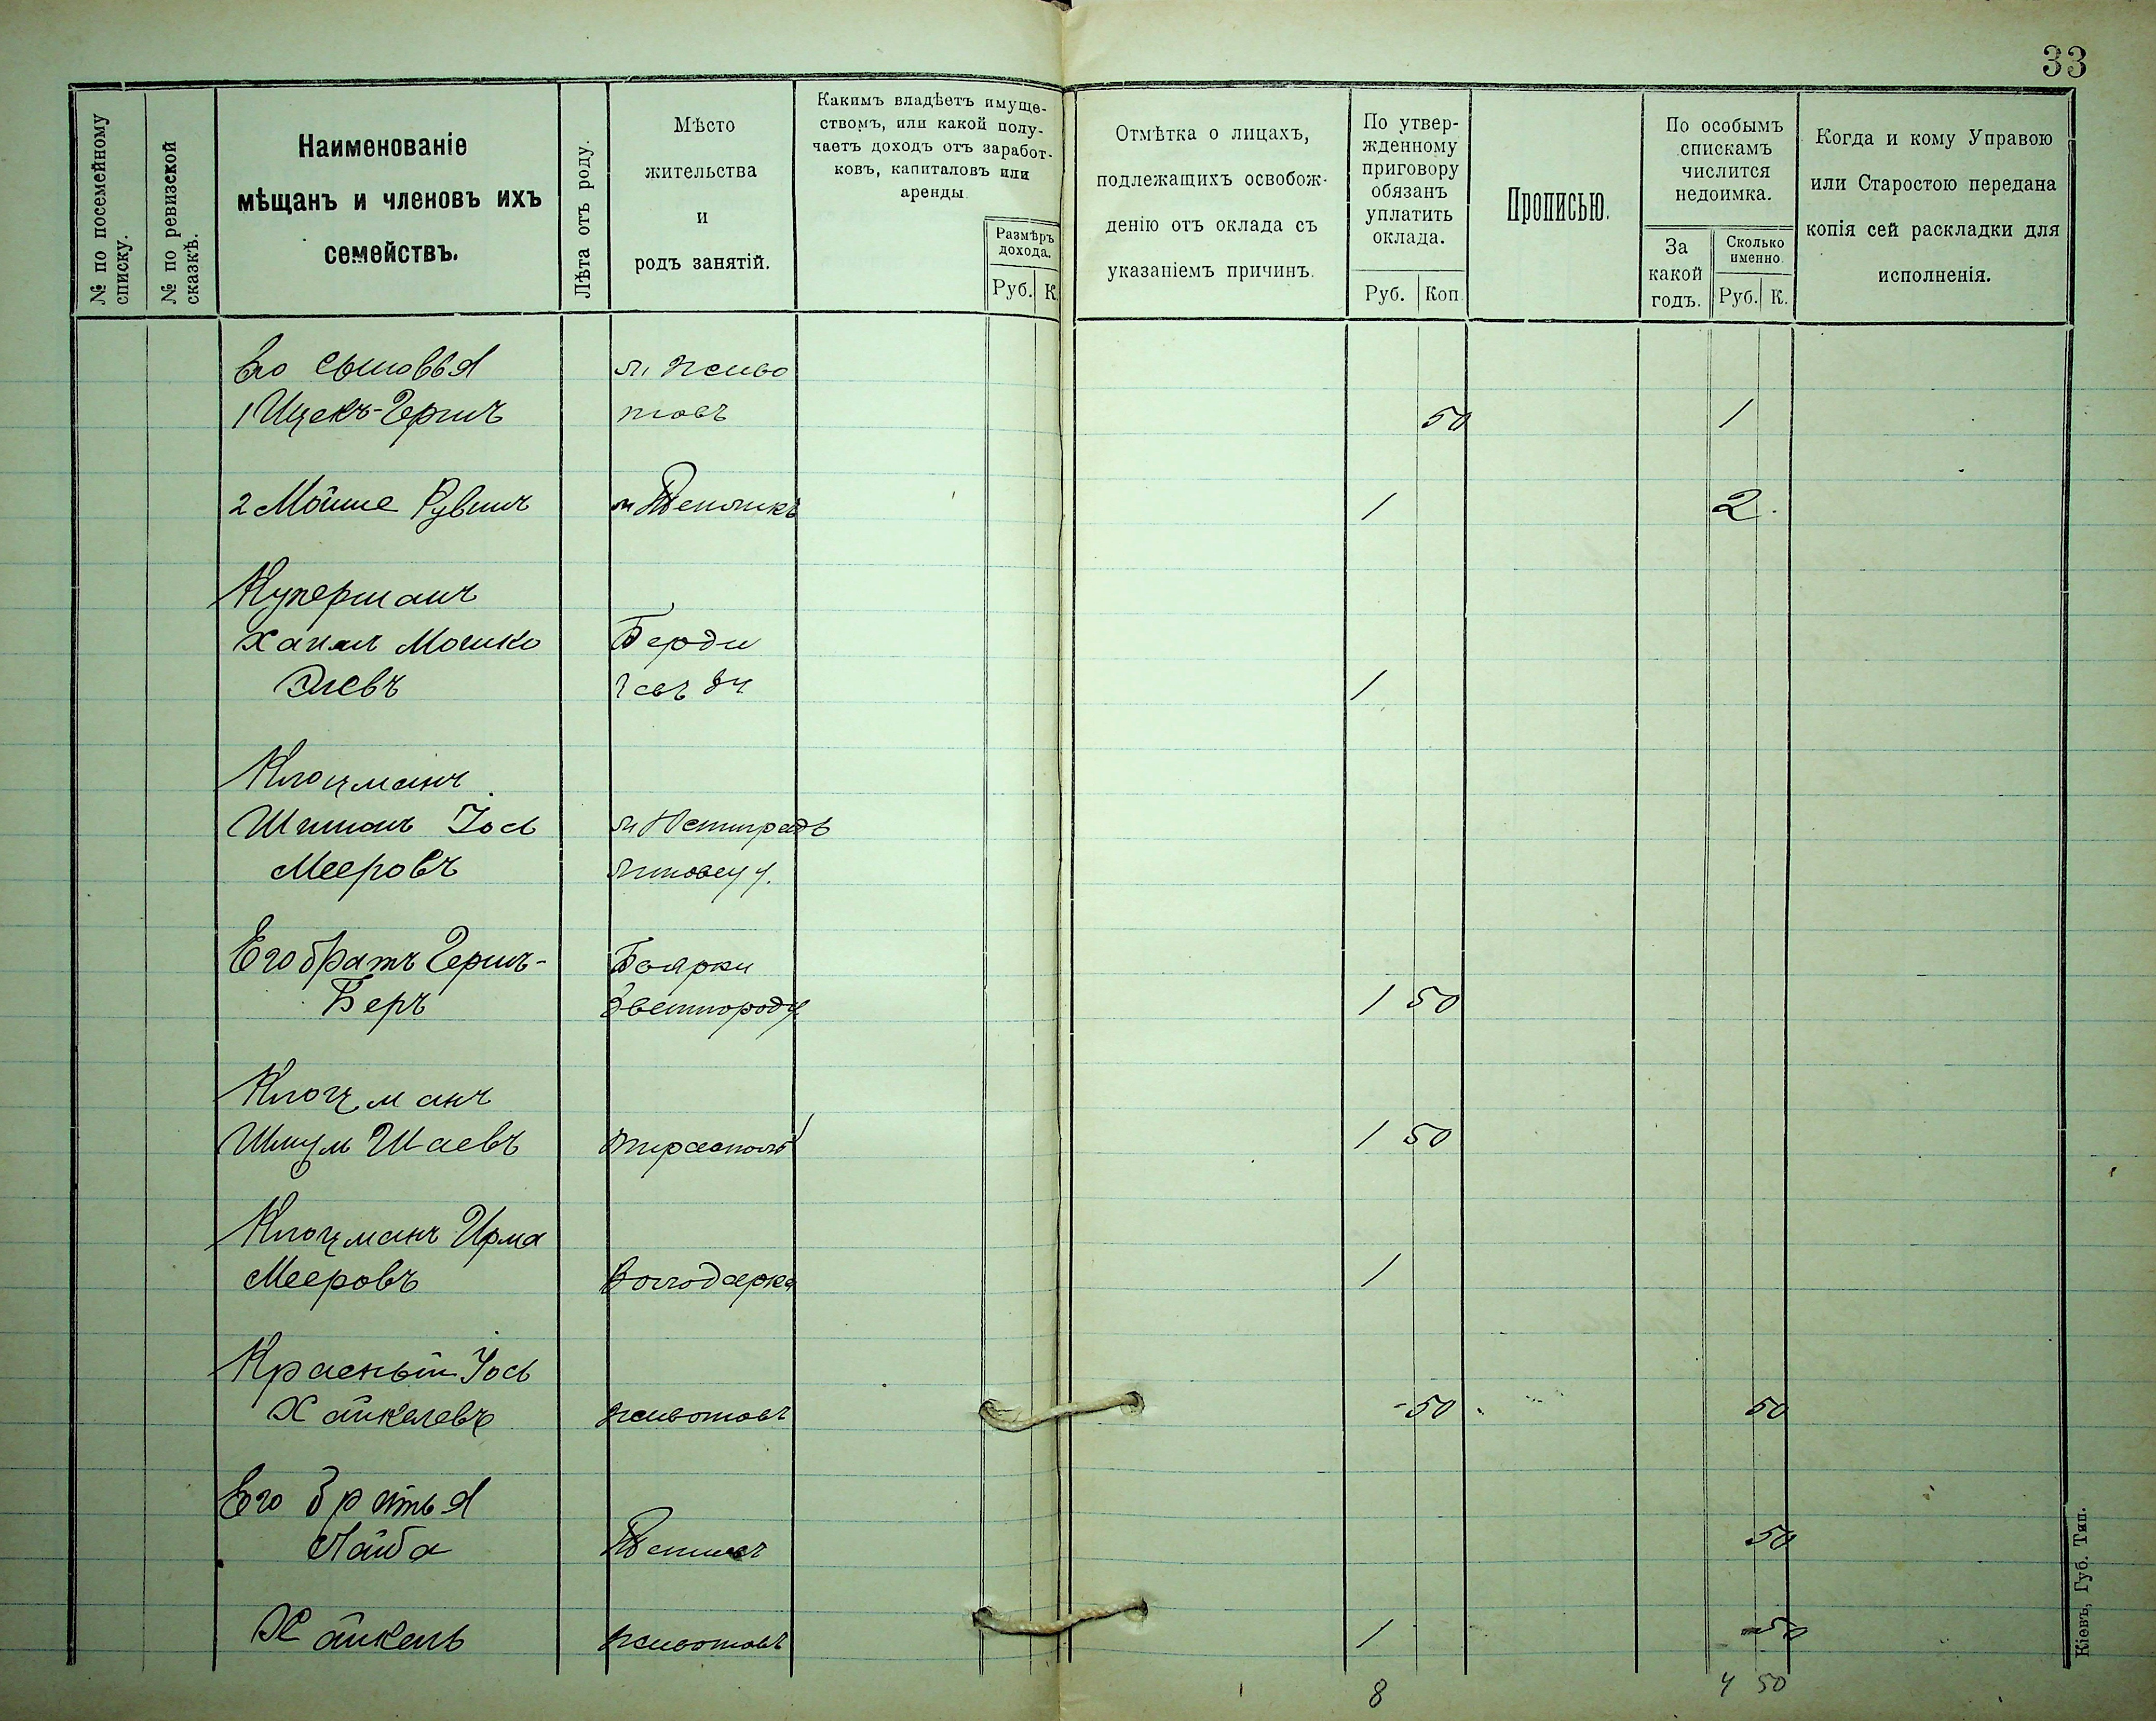 33
№ по посемейному списку.
№ по ревизской сказкѣ.
Наименованіе
мѣщанъ и членовъ ихъ
семействъ.
Лѣта отъ роду.
Мѣсто
жительства
и
родъ занятій.
Какимъ владѣетъ имуще-
ствомъ, или какой полу-
чаетъ доходъ отъ заработ-
ковъ, капиталовъ или
аренды.
Размѣръ
дохода.
Руб. К.
Отмѣтка о лицахъ,
подлежащихъ освобож-
денію отъ оклада съ
указаніемъ причинъ.
По утвер-
жденному
приговору
обязанъ
уплатить
оклада.
Руб. Коп.
Прописью.
По особымъ
спискамъ
числится
недоимка.
За
какой
годъ.
Сколько
именно
Руб. К.
Когда и кому Управою
или Старостою передана
копія сей раскладки для
исполненія.
Его сыновья м. Живо
1 Ицекъ-Гершъ товъ 50 1
2 Мойше Рувинъ 1 2.
Куперманъ
Мошко Берди
чевъ 1
Клоцманъ
Іось
Мееровъ
Его братъ Гершъ- Боярки
Беръ 1 50
Клоцманъ
Шмул Шаевъ Тирасполь 1 50
Клоцманъ
Мееровъ Володарка 1
Красный Іось
Хайкелевъ Животовъ - 50 50
Его братья
Лайба 50
Хайкель Животовъ 1 50
8 4 50
Кіевъ, Губ. Тип.